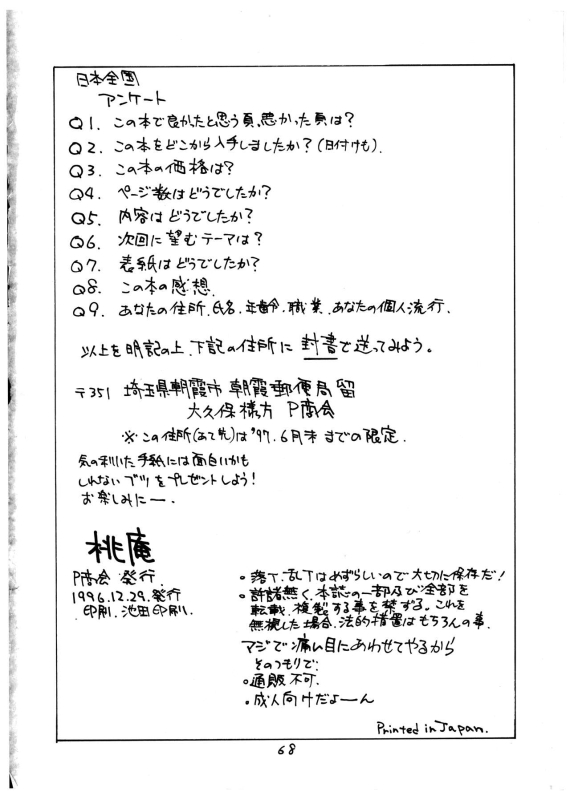 日本全国
アンケート
Q1. この本で良かったと思う頁、悪かった頁は?
Q2. この本をどこから入手しましたか?(日付けも).
Q3. この本の価格は?
Q4. ページ数はどうでしたか?
Q5. 内容はどうでしたか?
Q6. 次回に望むテーマは?
Q7. 表紙はどうでしたか?
Q8. この本の感想.
Q9. あなたの住所.氏名.年齢.職業.あなたの個人流行.
以上を明記の上、下記の住所に封書で送ってみよう。
〒351 埼玉県朝霞市朝霞郵便局留
大久保様方 P商会
※この住所(あて先)は'97.6月末までの限定.
気の利いた手紙には面白いかも
しれないブツをプレゼントしよう!
お楽しみにー.
桃庵
P商会 発行.
1996.12.29.発行
印刷. 池田印刷.
。落丁、乱丁はめずらしいので大切に保存だ!
。許諾無く、本誌の一部及び全部を
転載.複製する事を禁ずる。これを
無視した場合、法的措置はもちろんの事.
マジで痛い目にあわせてやるから
そのつもりで.
。通販不可.
。成人向けだよーん
Printed in Japan.
68